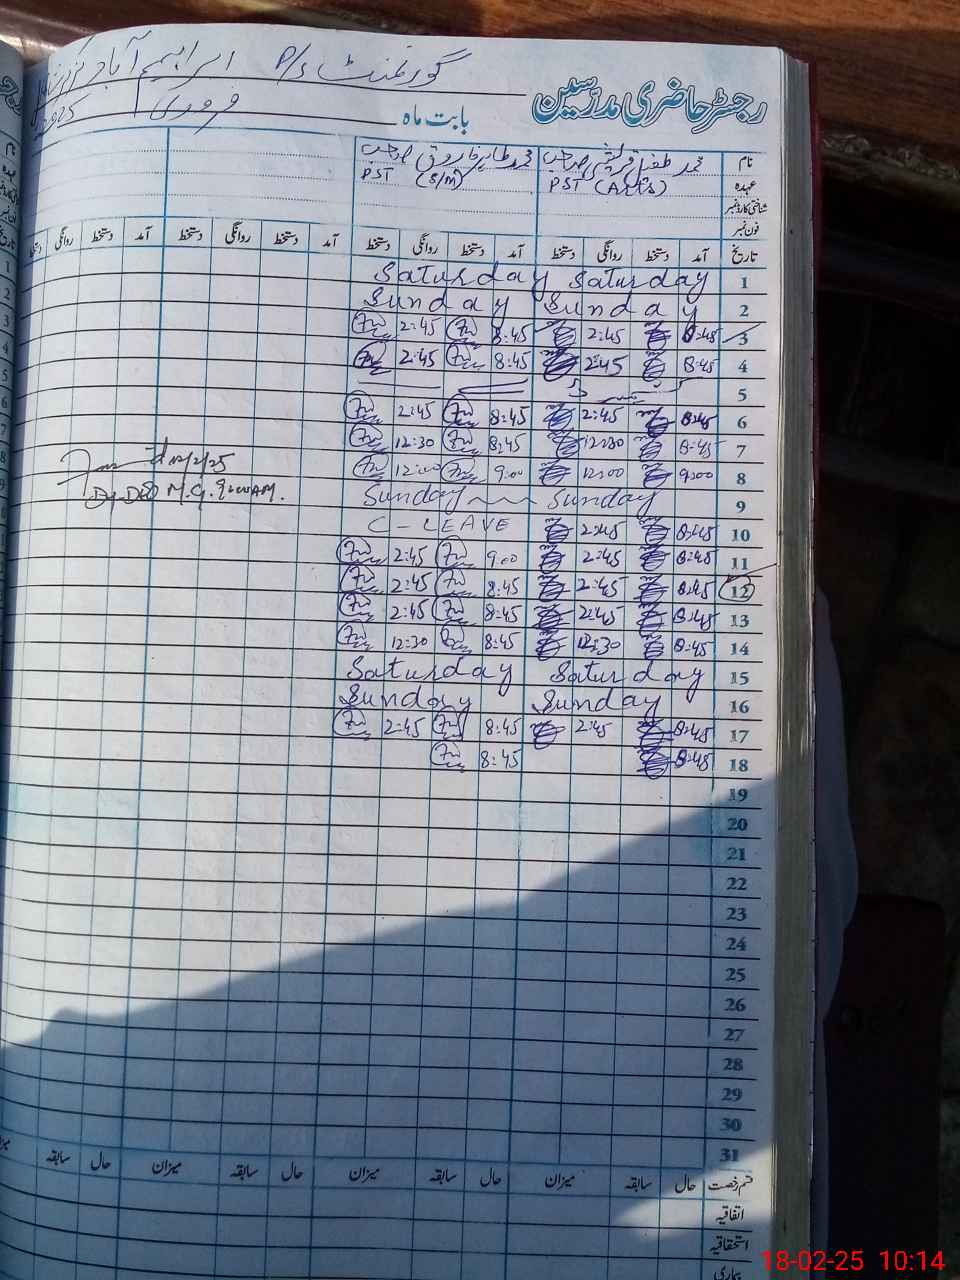 گورنمنٹ P/S ابراہیم آباد
رجسٹر حاضری مدرسین
بابت ماہ فروری 2025
نام محمد طفیل قریشی صاحب محمد طاہر فاروق صاحب
عہدہ PST (Arts) PST (S/M)
شناختی کارڈ نمبر
فون نمبر
تاریخ آمد دستخط روانگی دستخط آمد دستخط روانگی دستخط آمد دستخط روانگی دستخط آمد دستخط روانگی
1 Saturday Saturday
2 Sunday Sunday
3 8:45 2:45 8:45 2:45
4 8:45 2:45 8:45 2:45
5
6 8:45 2:45 8:45 2:45
7 8:45 12:30 8:45 12:30
8 9:00 12:00 9:00 12:00
9 Sunday Sunday
10 8:45 2:45 C-LEAVE
11 8:45 2:45 9:00 2:45
12 8:45 2:45 8:45 2:45
13 8:45 2:45 8:45 2:45
14 8:45 12:30 8:45 12:30
15 Saturday Saturday
16 Sunday Sunday
17 8:45 2:45 8:45 2:45
18 8:45 8:45
19
20
21
22
23
24
25
26
27
28
29
30
31
12/2/25
Dy-DEO M.G.
قسم رخصت حال سابقہ میزان حال سابقہ میزان حال سابقہ میزان حال سابقہ
اتفاقیہ
استحقاقیہ
بیماری
18-02-25 10:14